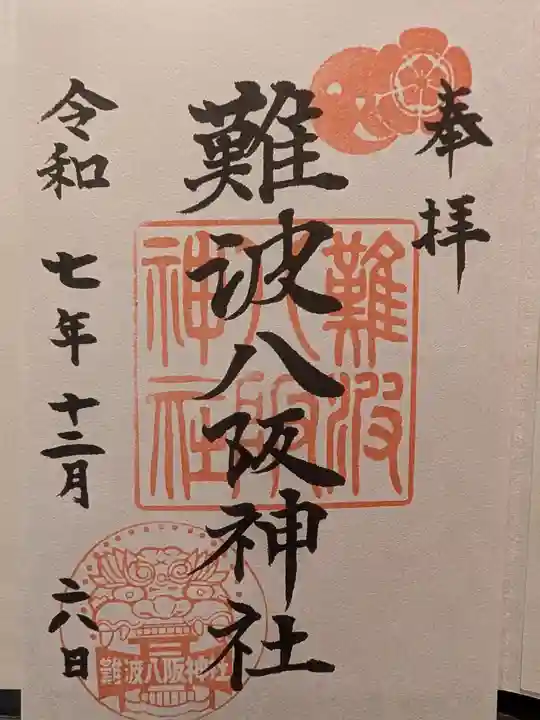 奉拝
難波八阪神社
難波八阪神社
令和七年十二月二八日
難波八阪神社